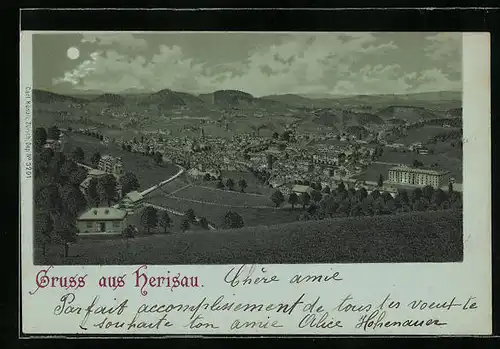 Gruss aus Herisau.
Chère amie
Parfait accomplissement de tous tes voeux te
souhaite ton amie Alice Hohenauer